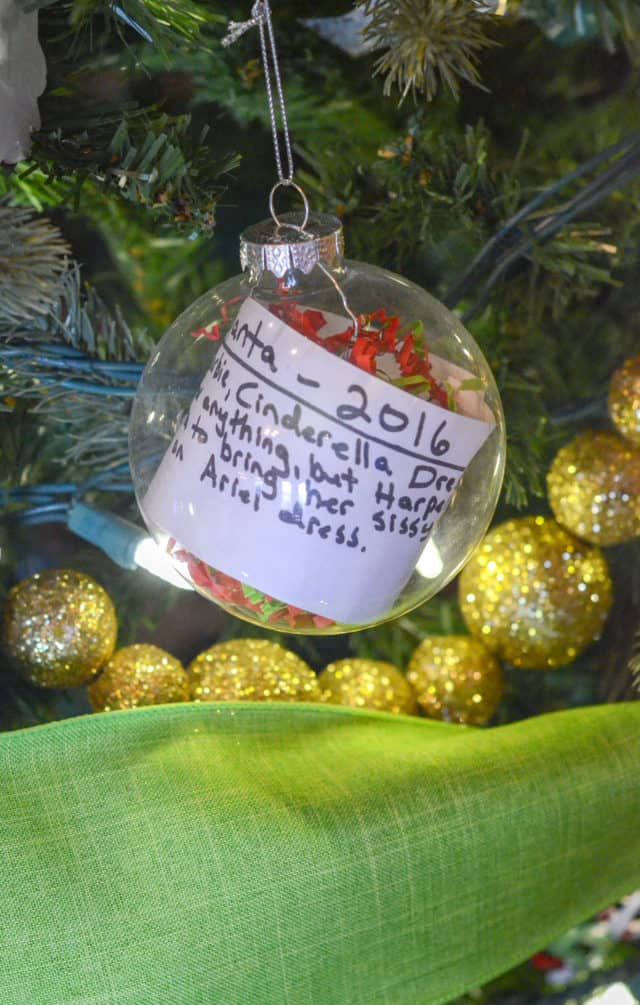 anta - 2016
bie, Cinderella Dre
anything, but Harpe
d to bring her sissy
an Ariel dress.